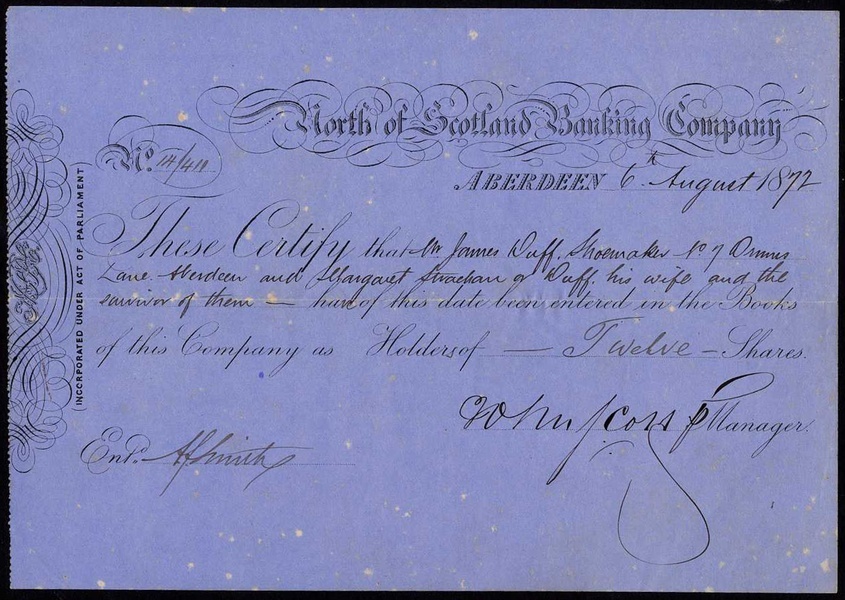 North of Scotland Banking Company
No. 14/411
ABERDEEN 6th August 1872
(INCORPORATED UNDER ACT OF PARLIAMENT)
These Certify that Mr James Duff, Shoemaker No 7
Lane Aberdeen and Margaret Strachan or Duff, his wife and the
survivor of them — have of this date been entered in the Books
of this Company as Holders of — Twelve — Shares.
John p Manager.
Entd. Smith